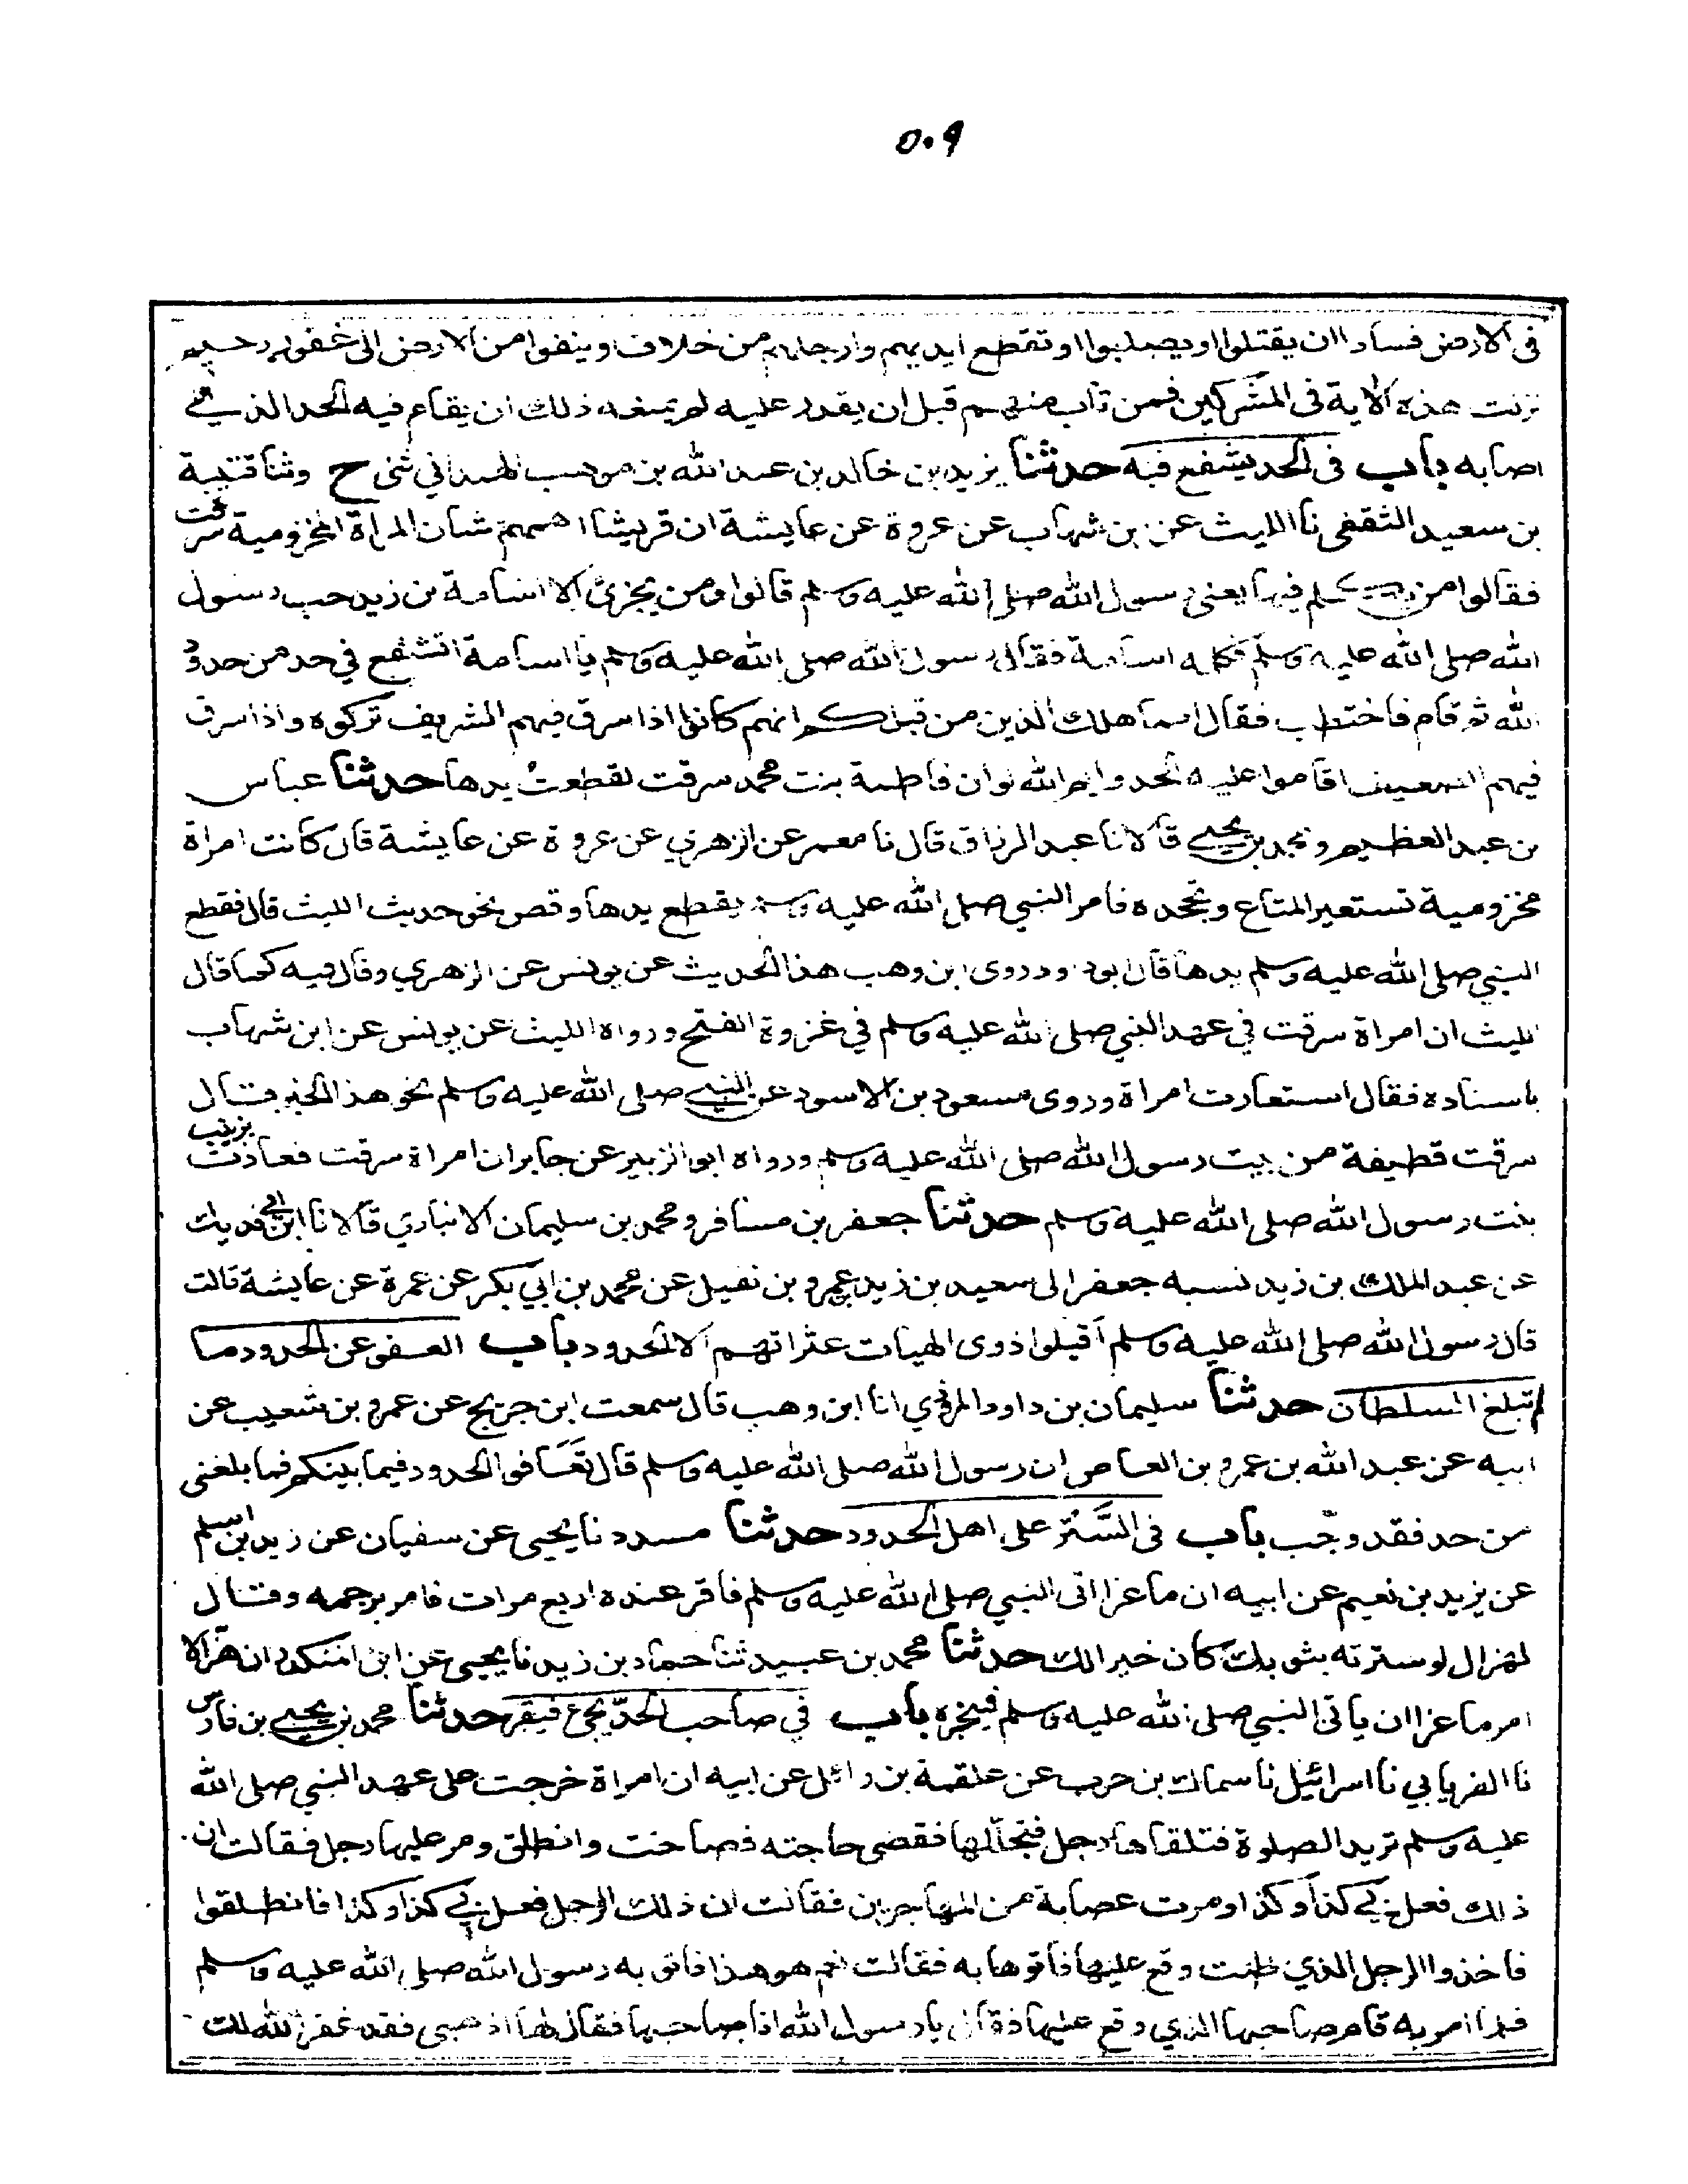 ٥٠٩
فى الارض فسادا ان يقتلوا او يصلبوا او تقطع ايديهم وارجلهم من خلاف او ينفوا من الارض الى غفور رحيم
نزلت هذه الاية فى المشركين فمن تاب منهم قبل ان يقدر عليه لم يمنعه ذلك ان يقام فيه الحد الذي
اصابه باب فى الحد يشفع فيه حدثنا يزيد بن خالد بن عبد الله بن موهب الهمداني ثنى ح وثنا قتيبة
بن سعيد الثقفى نا الليث عن بن شهاب عن عروة عن عايشة ان قريشا اهمهم شان المراة المخزومية سرقت
فقالوا من يكلم فيها يعنى رسول الله صلى الله عليه وسلم قالوا ومن يجزئ الا اسامة بن زيد حب رسول
الله صلى الله عليه وسلم فكلمه اسامة فقال رسول الله صلى الله عليه وسلم يا اسامة اتشفع في حد من حدود
الله ثم قام فاختطب فقال انما هلك الذين من قبلكم انهم كانوا اذا سرق فيهم الشريف تركوه واذا سرق
فيهم الضعيف اقاموا عليه الحد وايم الله لو ان فاطمة بنت محمد سرقت لقطعت يدها حدثنا عباس
بن عبد العظيم ومحمد بن يحيى قالا نا عبد الرزاق قال نا معمر عن الزهري عن عروة عن عايشة قال كانت امراة
مخزومية تستعير المتاع وتجحده فامر النبي صلى الله عليه وسلم بقطع يدها وقص نحو حديث الليث قال فقطع
النبي صلى الله عليه وسلم يدها قال ابو داود روى ابن وهب هذا الحديث عن يونس عن الزهري وقال فيه كما قال
الليث ان امراة سرقت في عهد النبي صلى الله عليه وسلم في غزوة الفتح ورواه الليث عن يونس عن ابن شهاب
باسناده فقال استعارت امراة وروى مسعود بن الاسود عن النبي صلى الله عليه وسلم نحو هذا الخبر قال
سرقت قطيفة من بيت رسول الله صلى الله عليه وسلم ورواه ابو الزبير عن جابر ان امراة سرقت فعاذت بزينب
بنت رسول الله صلى الله عليه وسلم حدثنا جعفر بن مسافر ومحمد بن سليمان الانباري قالا نا ابن ابي فديك
عن عبد الملك بن زيد نسبه جعفر الى سعيد بن زيد بن عمرو بن نفيل عن محمد بن ابي بكر عن عمرة عن عايشة قالت
قال رسول الله صلى الله عليه وسلم اقيلوا ذوى الهيات عثراتهم الا الحدود باب العفو عن الحدود ما
لم تبلغ السلطان حدثنا سليمان بن داود المهري انا ابن وهب قال سمعت ابن جريج عن عمرو بن شعيب عن
ابيه عن عبد الله بن عمرو بن العاص ان رسول الله صلى الله عليه وسلم قال تَعَافوا الحدود فيما بينكم فما بلغنى
من حد فقد وجب باب فى السَّتر على اهل الحدود حدثنا مسدد نا يحيى عن سفيان عن زيد بن اسلم
عن يزيد بن نعيم عن ابيه ان ماعزا اتى النبي صلى الله عليه وسلم فاقر عنده اربع مرات فامر برجمه وقال
لهزال لو سترته بثوبك كان خير الك حدثنا محمد بن عبيد ثنا حماد بن زيد نا يحيى عن ابن المنكدر ان هزالا
امر ماعزا ان ياتى النبي صلى الله عليه وسلم فيخبره باب في صاحب الحدّ يجئ فيقر حدثنا محمد بن يحيى بن فارس
نا الفريابي نا اسرائيل نا سماك بن حرب عن علقمة بن وائل عن ابيه ان امراة خرجت على عهد النبي صلى الله
عليه وسلم تريد الصلوة فتلقاها رجل فتجللها فقضى حاجته فصاحت وانطلق ومر عليها رجل فقالت ان
ذلك فعل بي كذا وكذا ومرت عصابة من المهاجرين فقالت ان ذلك الرجل فعل بي كذا وكذا فانطلقوا
فاخذوا الرجل الذي ظنت وقع عليها فاتوها به فقالت نعم هو هذا فاتو به رسول الله صلى الله عليه وسلم
فلما امر به قام صاحبها الذي وقع عليها فقال يا رسول الله انا صاحبها فقال لها اذهبى فقد غفر الله لك